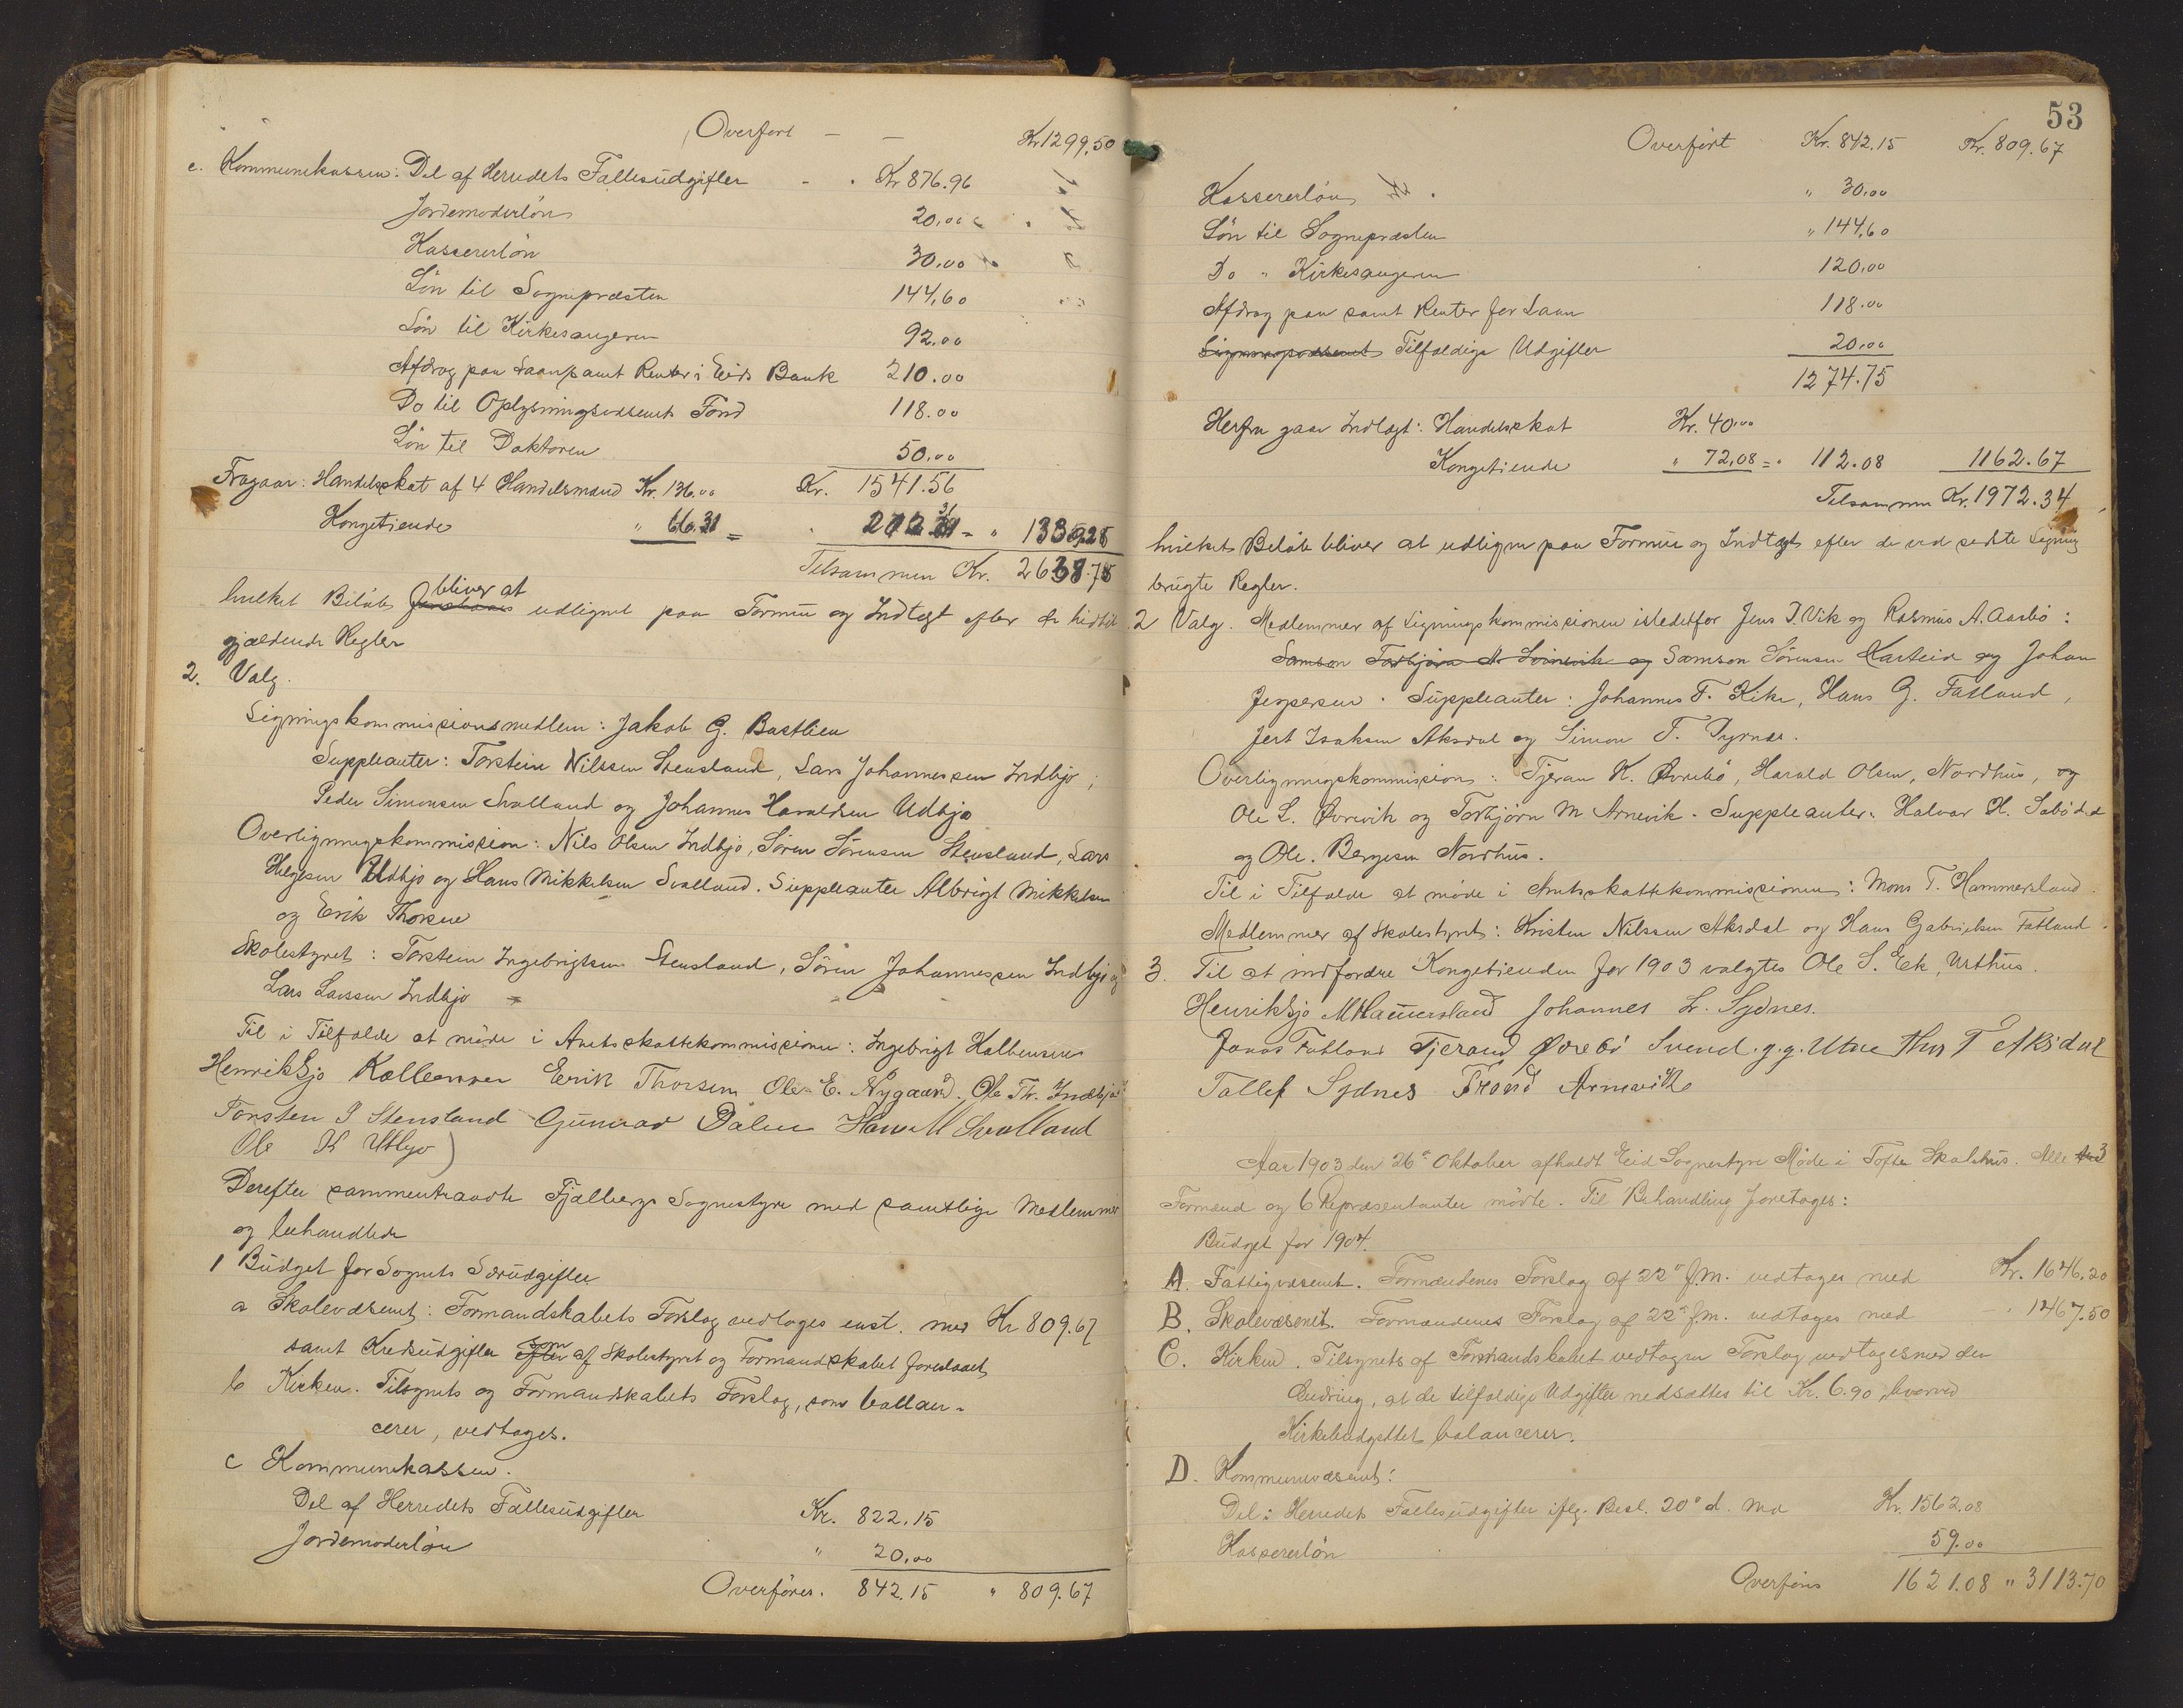 Overført – – Kr 1299,50
c. Kommunekassen: Del af Herredets Fællesudgifter - . Kr 876.96
Jordemoderløn 20,00
Kassererløn 30,00
Løn til Sognepræsten 144,60
Løn til Kirkesangeren 92.00
Afdrag paa Laan samt Renter i Eids Bank 210.00
Do til Oplysningsvæsenets Fond 118.00
Løn til Doktoren 50,00
Fragaar: Handelsskat af 4 Handelsmænd Kr. 136.00 Kr. 1541.56
Kongetiende " 66.31 =
Tilsammen Kr.
bliver at
hvilket Beløb udlignet paa Formue og Indtægt efter de hidtil
gjældende Regler
2. Valg.
Ligningskommissionsmedlem: Jakob G. Bastlien
Suppleanter: Torstein Nilssen Stensland, Lars Johannessen Indbjo,
Peder Simonsen Svalland og Johannes Haraldsen Udbjo
Overligningskommission: Nils Olsen Indbjo, Søren Sørensen Stensland, Lars
Helgesen Udbjo og Hans Mikkelsen Svalland. Suppleanter Albrigt Mikkelsen
og Erik Thorsen
Skolestyret: Torstein Ingebrigtsen Stensland, Søren Johannessen Indbjo og
Lars Larssen Indbjo
Til i Tilfælde at møde i Amtsskattekommissionen: Ingebrigt Kalbensen
Henrik Sjo Erik Thorsen Ole E. Nygaard. Ole Th. Indbjo
Torsten I Stensland Gunnar Dalen Hans M Svalland
Ole H Utbjo
Derefter sammentraadte Fjælbergs Sognestyre med samtlige Medlemmer
og behandlede
1 Budget for Sognets Særudgifter
a Skolevæsenet: Formandskabets Forslag vedtoges enst. med Kr 809.67
samt Kredsudgifter som af Skolestyret og Formandskabet foreslaaet
b Kirken. Tilsynets og Formandskabets Forslag, som ballan-
cerer, vedtages.
c Kommunekassen.
Del af Herredets Fællesudgifter Kr. 822.15
Jordemoderløn " 20,00
Overføres. 842.15 " 809.67
53
Overført Kr. 842.15 Kr. 809.67
Kassererløn " 30,00
Løn til Sognepræsten " 144,60
Do " Kirkesangeren 120,00
Afdrag paa samt Renter for Laan 118.00
Tilfældige Udgifter 20,00
1274.75
Herfra gaar Indtægt: Handelsskat Kr. 40,00
Kongetiende " 72,08 = " 112.08 1162.67
Tilsammen Kr. 1972.34
hvilket Beløb bliver at udligne paa Formue og Indtægt efter de ved sidste Ligning
brugte Regler.
2 Valg. Medlemmer af Ligningskommissionen istedetfor Jens J. Vik og Rasmus A. Aasbø:
Samson Torbjørn M. Svinevik og Samson Sørensen Karteid og Johan
Jespersen. Suppleanter: Johannes F. Kike, Hans G. Fatland,
Jert Isaksen Aksdal og Simon T. Tyrnes.
Overligningskommission: Tjeran K. Øvrebø, Harald Olsen, Nordhus, og
Ole L. Øvrevik og Torbjørn M Arnevik. Suppleanter: Halvar H. Sabø
og Ole. Bergesen Nordhus.
Til i Tilfælde at møde i Amtsskattekommissionen: Mons T. Hammersland.
Medlemmer af Skolestyret: Kristen Nilssen Aksdal og Hans Gabrielsen Fatland.
3. Til at indfordre Kongetienden for 1903 valgtes Ole S. Eek, Urthus.
Henrik Sjo M Hammersland Johannes L. Sydnes.
Jonas Fatland Tjerand Øvrebø Svend. g.g. Utne T Aksdal
Tallef Sydnes Trond Arnevik
Aar 1903 den 26de Oktober afholdt Eid Sognestyre Møde i Tofte Skolehus. Alle 3
Formænd og 6 Repræsentanter mødte. Til Behandling foretoges:
Budget for 1904.
A. Fattigvæsenet. Formændenes Forslag af 22de f.m. vedtages med Kr. 1646.20
B. Skolevæsenet. Formændenes Forslag af 22de f.m. vedtages med – " 1467.50
C. Kirken. Tilsynets af Formandskabet vedtagen Forslag vedtages med den
Ændring, at de tilfældige Udgifter nedsættes til Kr. 6.90, hvorved
Kirkebudgettet balancerer.
D. Kommunevæsenet:
Del i Herredets Fællesudgifter iflg. Besl. 20de d. Md Kr. 1562.08
Kassererløn 59.00
Overføres 1621.08 " 3113.70